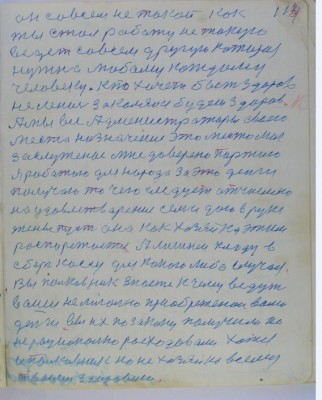 он совсем не такой как 114
ты стал работу не такую
ведет совсем другую которая
нужна любому каждому
человеку. Кто хочет быть здоров
не ленись закаляйся будеш здоров.
А мы все Администраторы своего
места назначения Это место мое
заслуженое мне доверено Партиею
Я работаю для народа За это деньги
получаю то чего следует отчисляю
на удовлетварение семи даю в руки
жены пуст она как хозяйка этим
роспоряжается А лишнии кладу в
сбер кассу для какого либо случая.
Вы полковник знаете к чему ведут
ваши не законо приобретеной вами
деньги Вы их по закону получили но
не рационально расходовали Хотя
и полковник но не хозяин всему
своему здоровию.